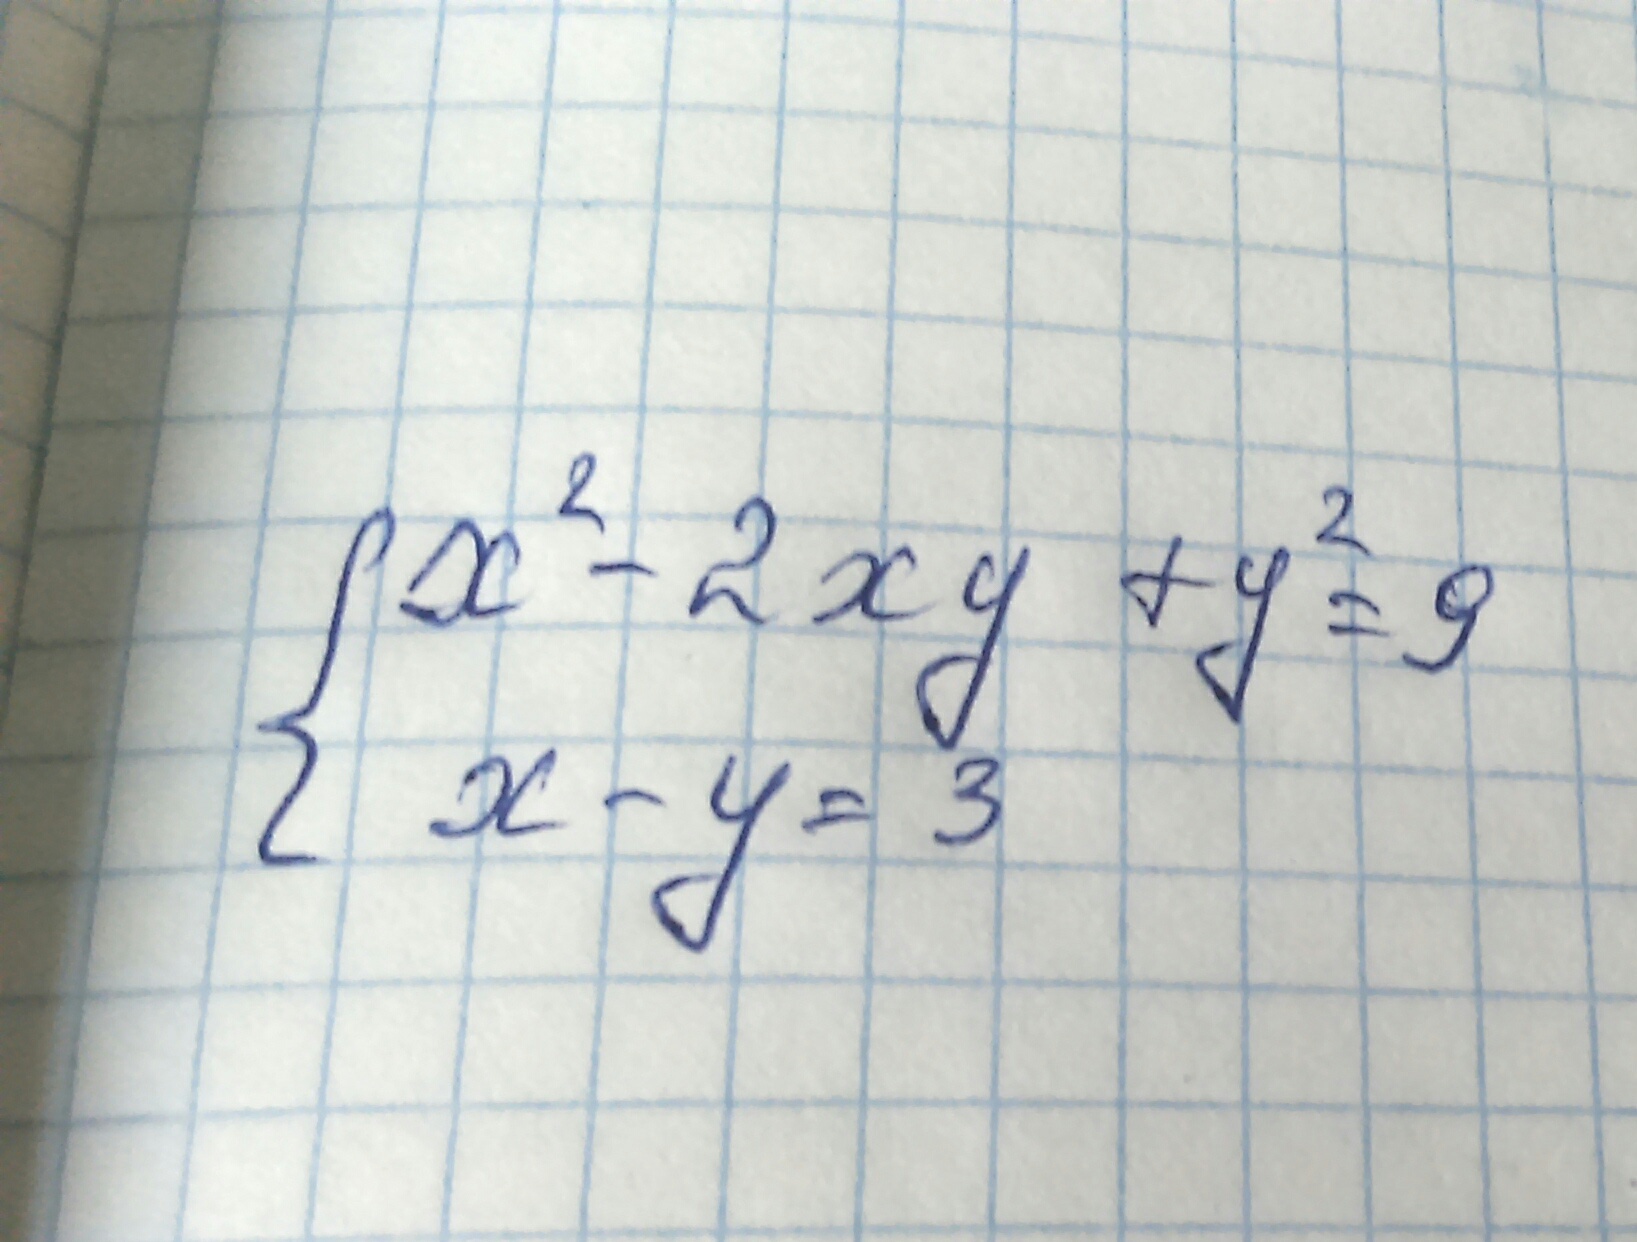 x² - 2xy + y² = 9
x - y = 3